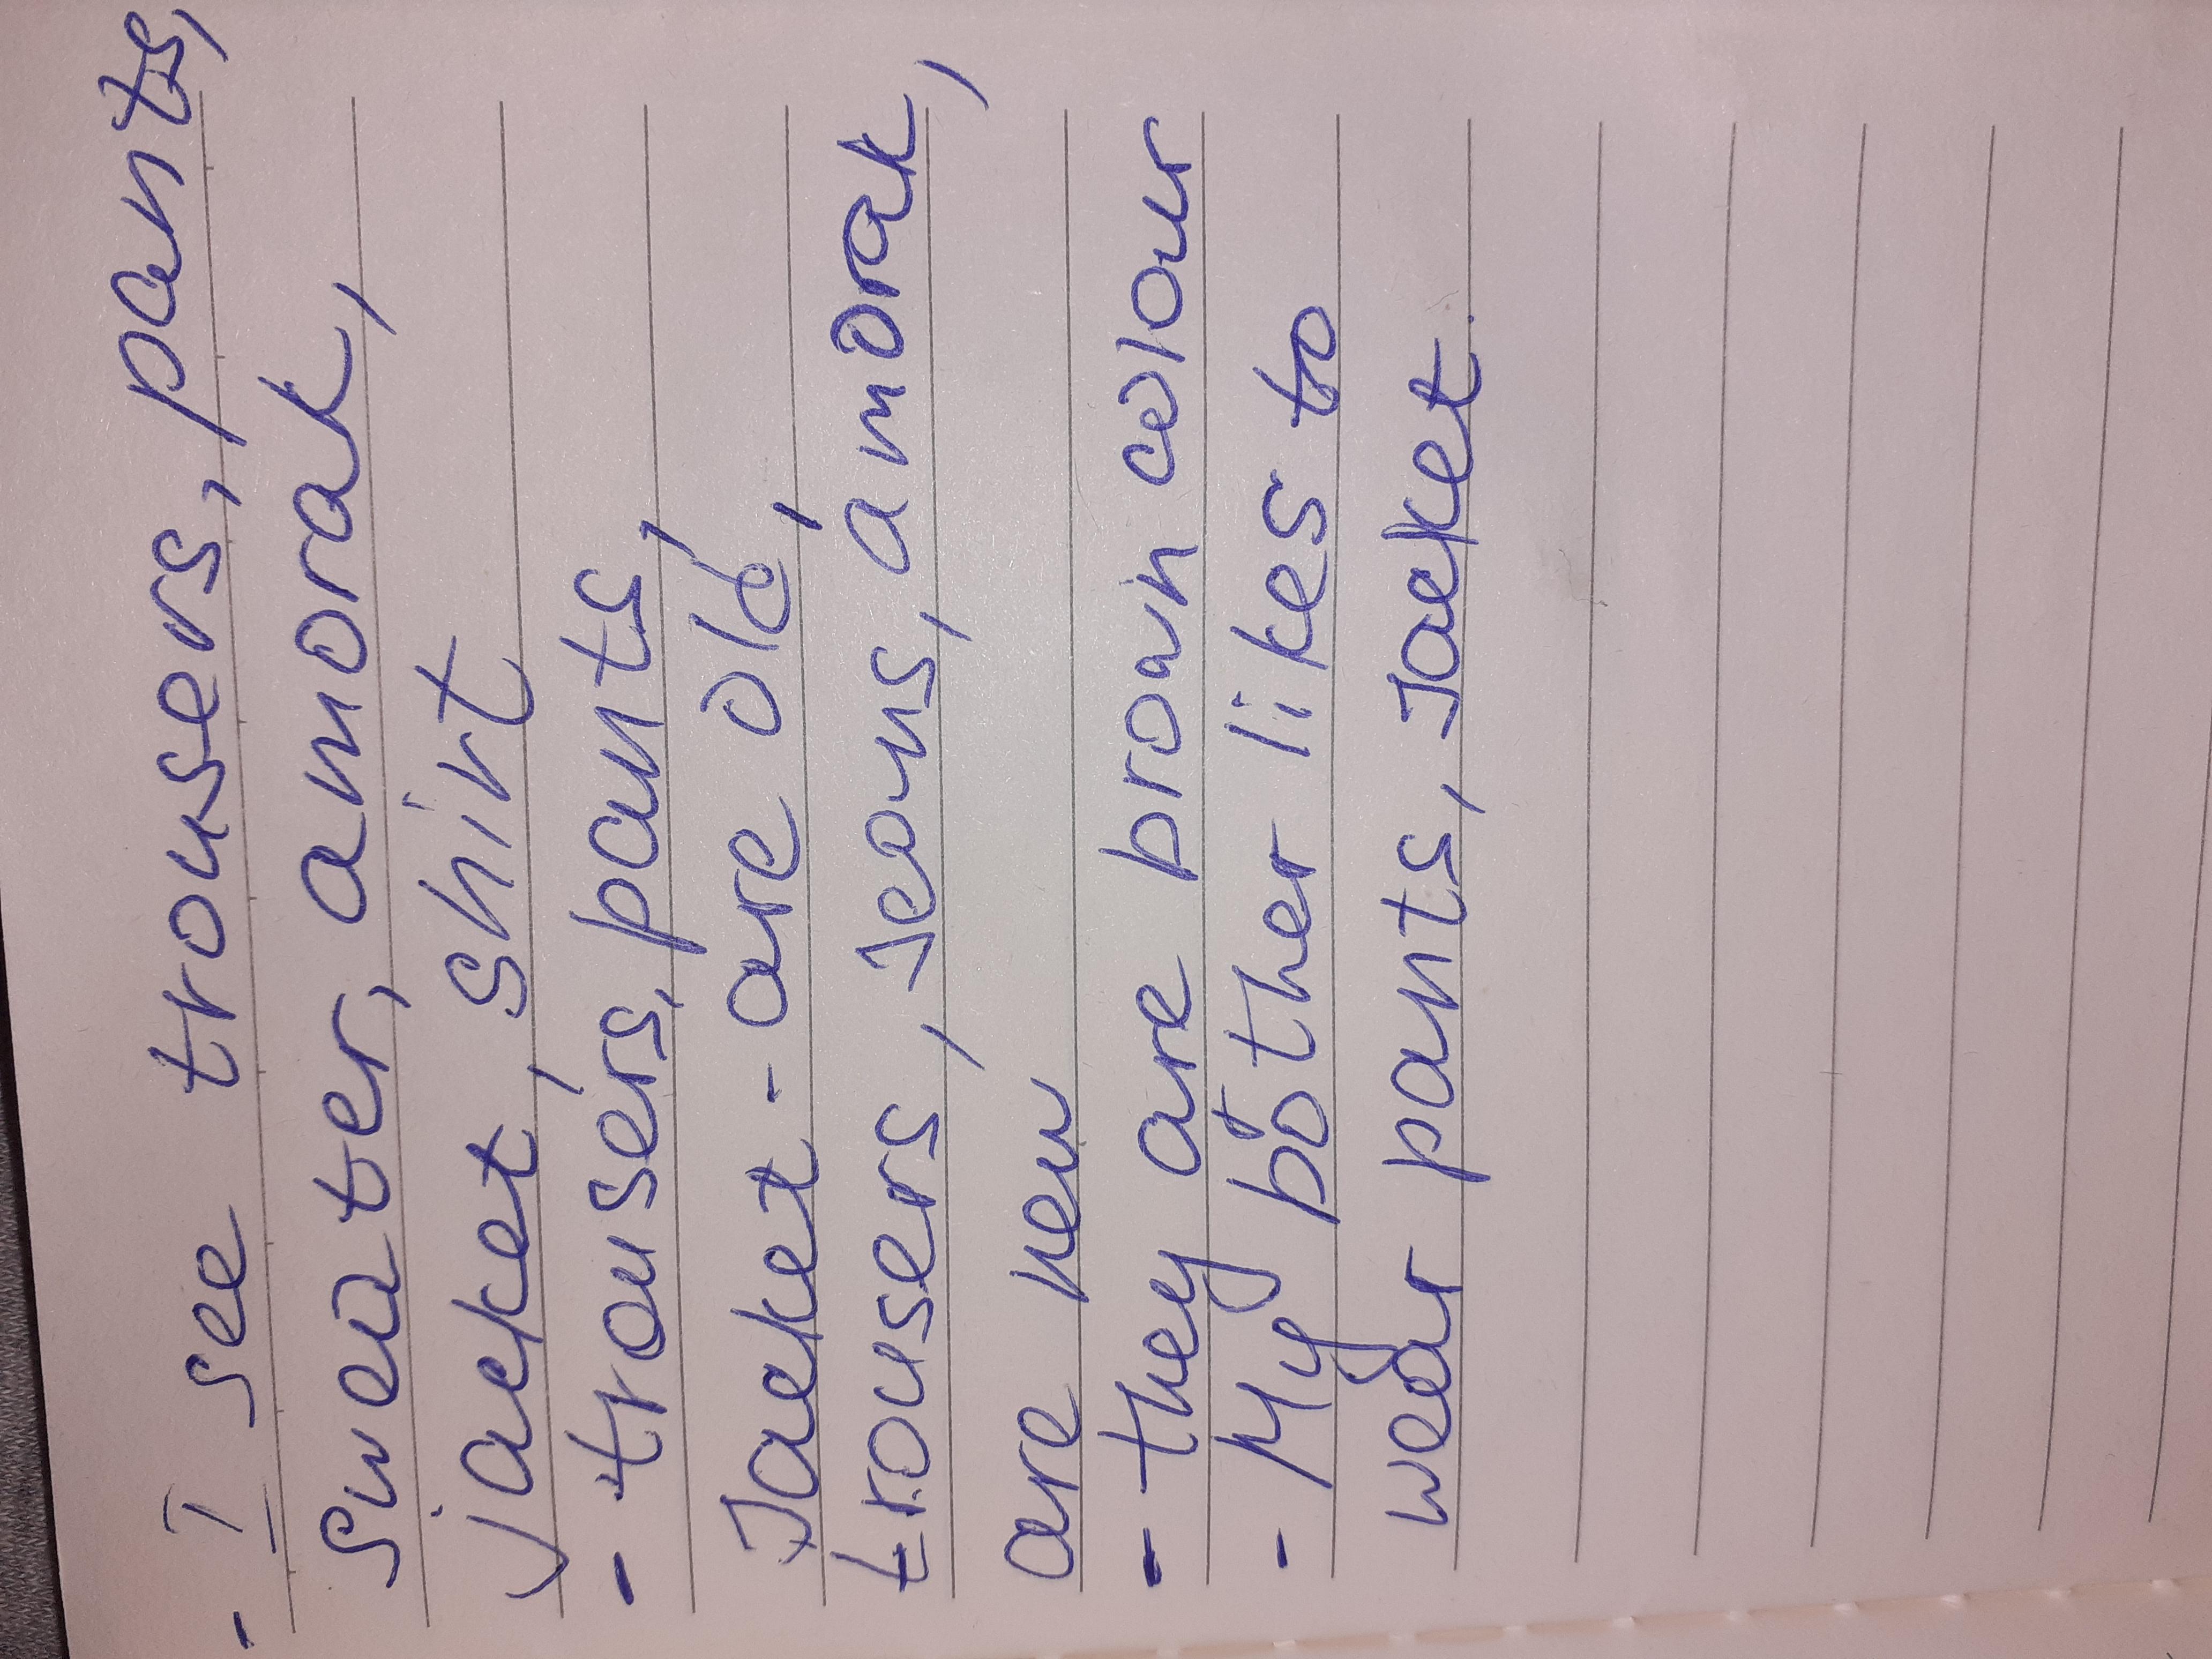 - I see trousers, pants,
sweater, amorak,
jacket, shirt
- trousers, pants,
Jacket - are old,
trousers, Jeans, amorak,
are new
- they are brown colour
- My bother likes to
wear pants, Jacket.